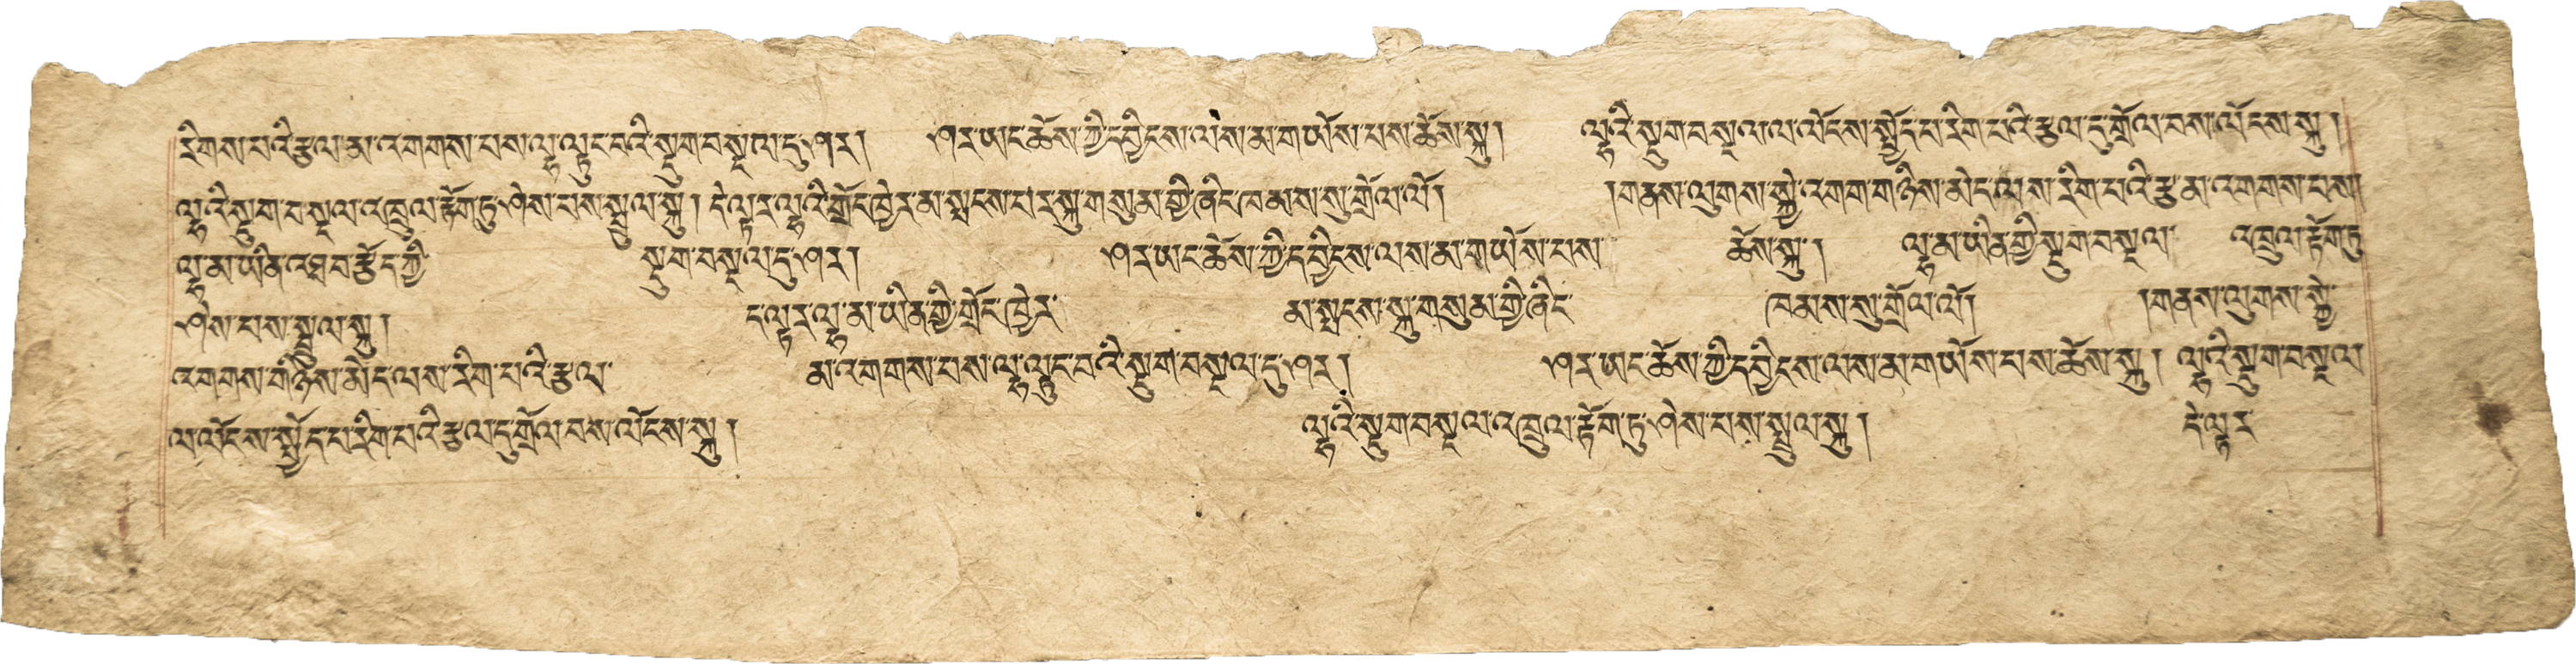 རིགས་པའི་རྩལ་མ་འགགས་པས་ལྷ་ལྟུང་བའི་སྡུག་བསྔལ་དུ་ཤར། ཤར་ཡང་ཆོས་ཀྱི་དབྱིངས་ལས་མ་གཡོས་པས་ཆོས་སྐུ། ལྷའི་སྡུག་བསྔལ་ལ་ལོངས་སྤྱོད་པ་རིག་པའི་རྩལ་དུ་གྲོལ་བས་ལོངས་སྐུ།
ལྷའི་སྡུག་བསྔལ་འཁྲུལ་རྟོག་ཏུ་ཤེས་པས་སྤྲུལ་སྐུ། དེ་ལྟར་ལྷའི་གྲོང་ཁྱེར་མ་སྤངས་པར་སྐུ་གསུམ་གྱི་ཞིང་ཁམས་སུ་གྲོལ་ལོ། །གནས་ལུགས་སྐྱེ་འགག་གཉིས་མེད་ལས་རིག་པའི་རྩ་མ་འགགས་པས།
ལྷ་མ་ཡིན་འཐབ་རྩོད་ཀྱི་ སྡུག་བསྔལ་དུ་ཤར། ཤར་ཡང་ཆོས་ཀྱི་དབྱིངས་ལས་མ་གཡོས་པས་ ཆོས་སྐུ། ལྷ་མ་ཡིན་གྱི་སྡུག་བསྔལ་ འཁྲུལ་རྟོག་ཏུ
ཤེས་པས་སྤྲུལ་སྐུ། ད་ལྟར་ལྷ་མ་ཡིན་གྱི་གྲོང་ཁྱེར་ མ་སྤངས་སྐུ་གསུམ་གྱི་ཞིང་ ཁམས་སུ་གྲོལ་ལོ། །གནས་ལུགས་སྐྱེ་
འགགས་གཉིས་མེད་ལས་རིག་པའི་རྩལ་ མ་འགགས་པས་ལྷ་ལྟུང་བའི་སྡུག་བསྔལ་དུ་ཤར། ཤར་ཡང་ཆོས་ཀྱི་དབྱིངས་ལས་མ་གཡོས་པས་ཆོས་སྐུ། ལྷའི་སྡུག་བསྔལ
ལ་ལོངས་སྤྱོད་པ་རིག་པའི་རྩལ་དུ་གྲོལ་བས་ལོངས་སྐུ། ལྷའི་སྡུག་བསྔལ་འཁྲུལ་རྟོག་ཏུ་ཤེས་པས་སྤྲུལ་སྐུ། དེ་ལྟར